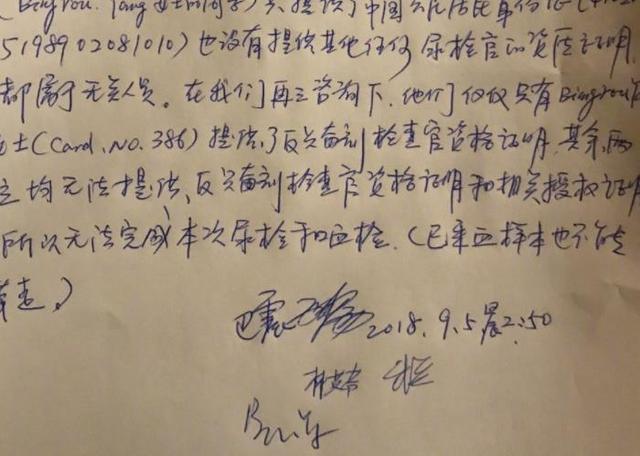 (Bingrou. Yang 女士的同学)只提供了中国公民居民身份证(
5198902081010)也没有提供其他任何尿检官的资质证明,
都属于无关人员。在我们再三咨询下,他们仅仅只有Bingrou
士(Card.No.386)提供了反兴奋剂检查官资格证明,其余两
位均无法提供反兴奋剂检查官资格证明和相关授权证明
所以无法完成本次尿检和血检.(已采血样本也不能
带走)
2018.9.5晨2:50